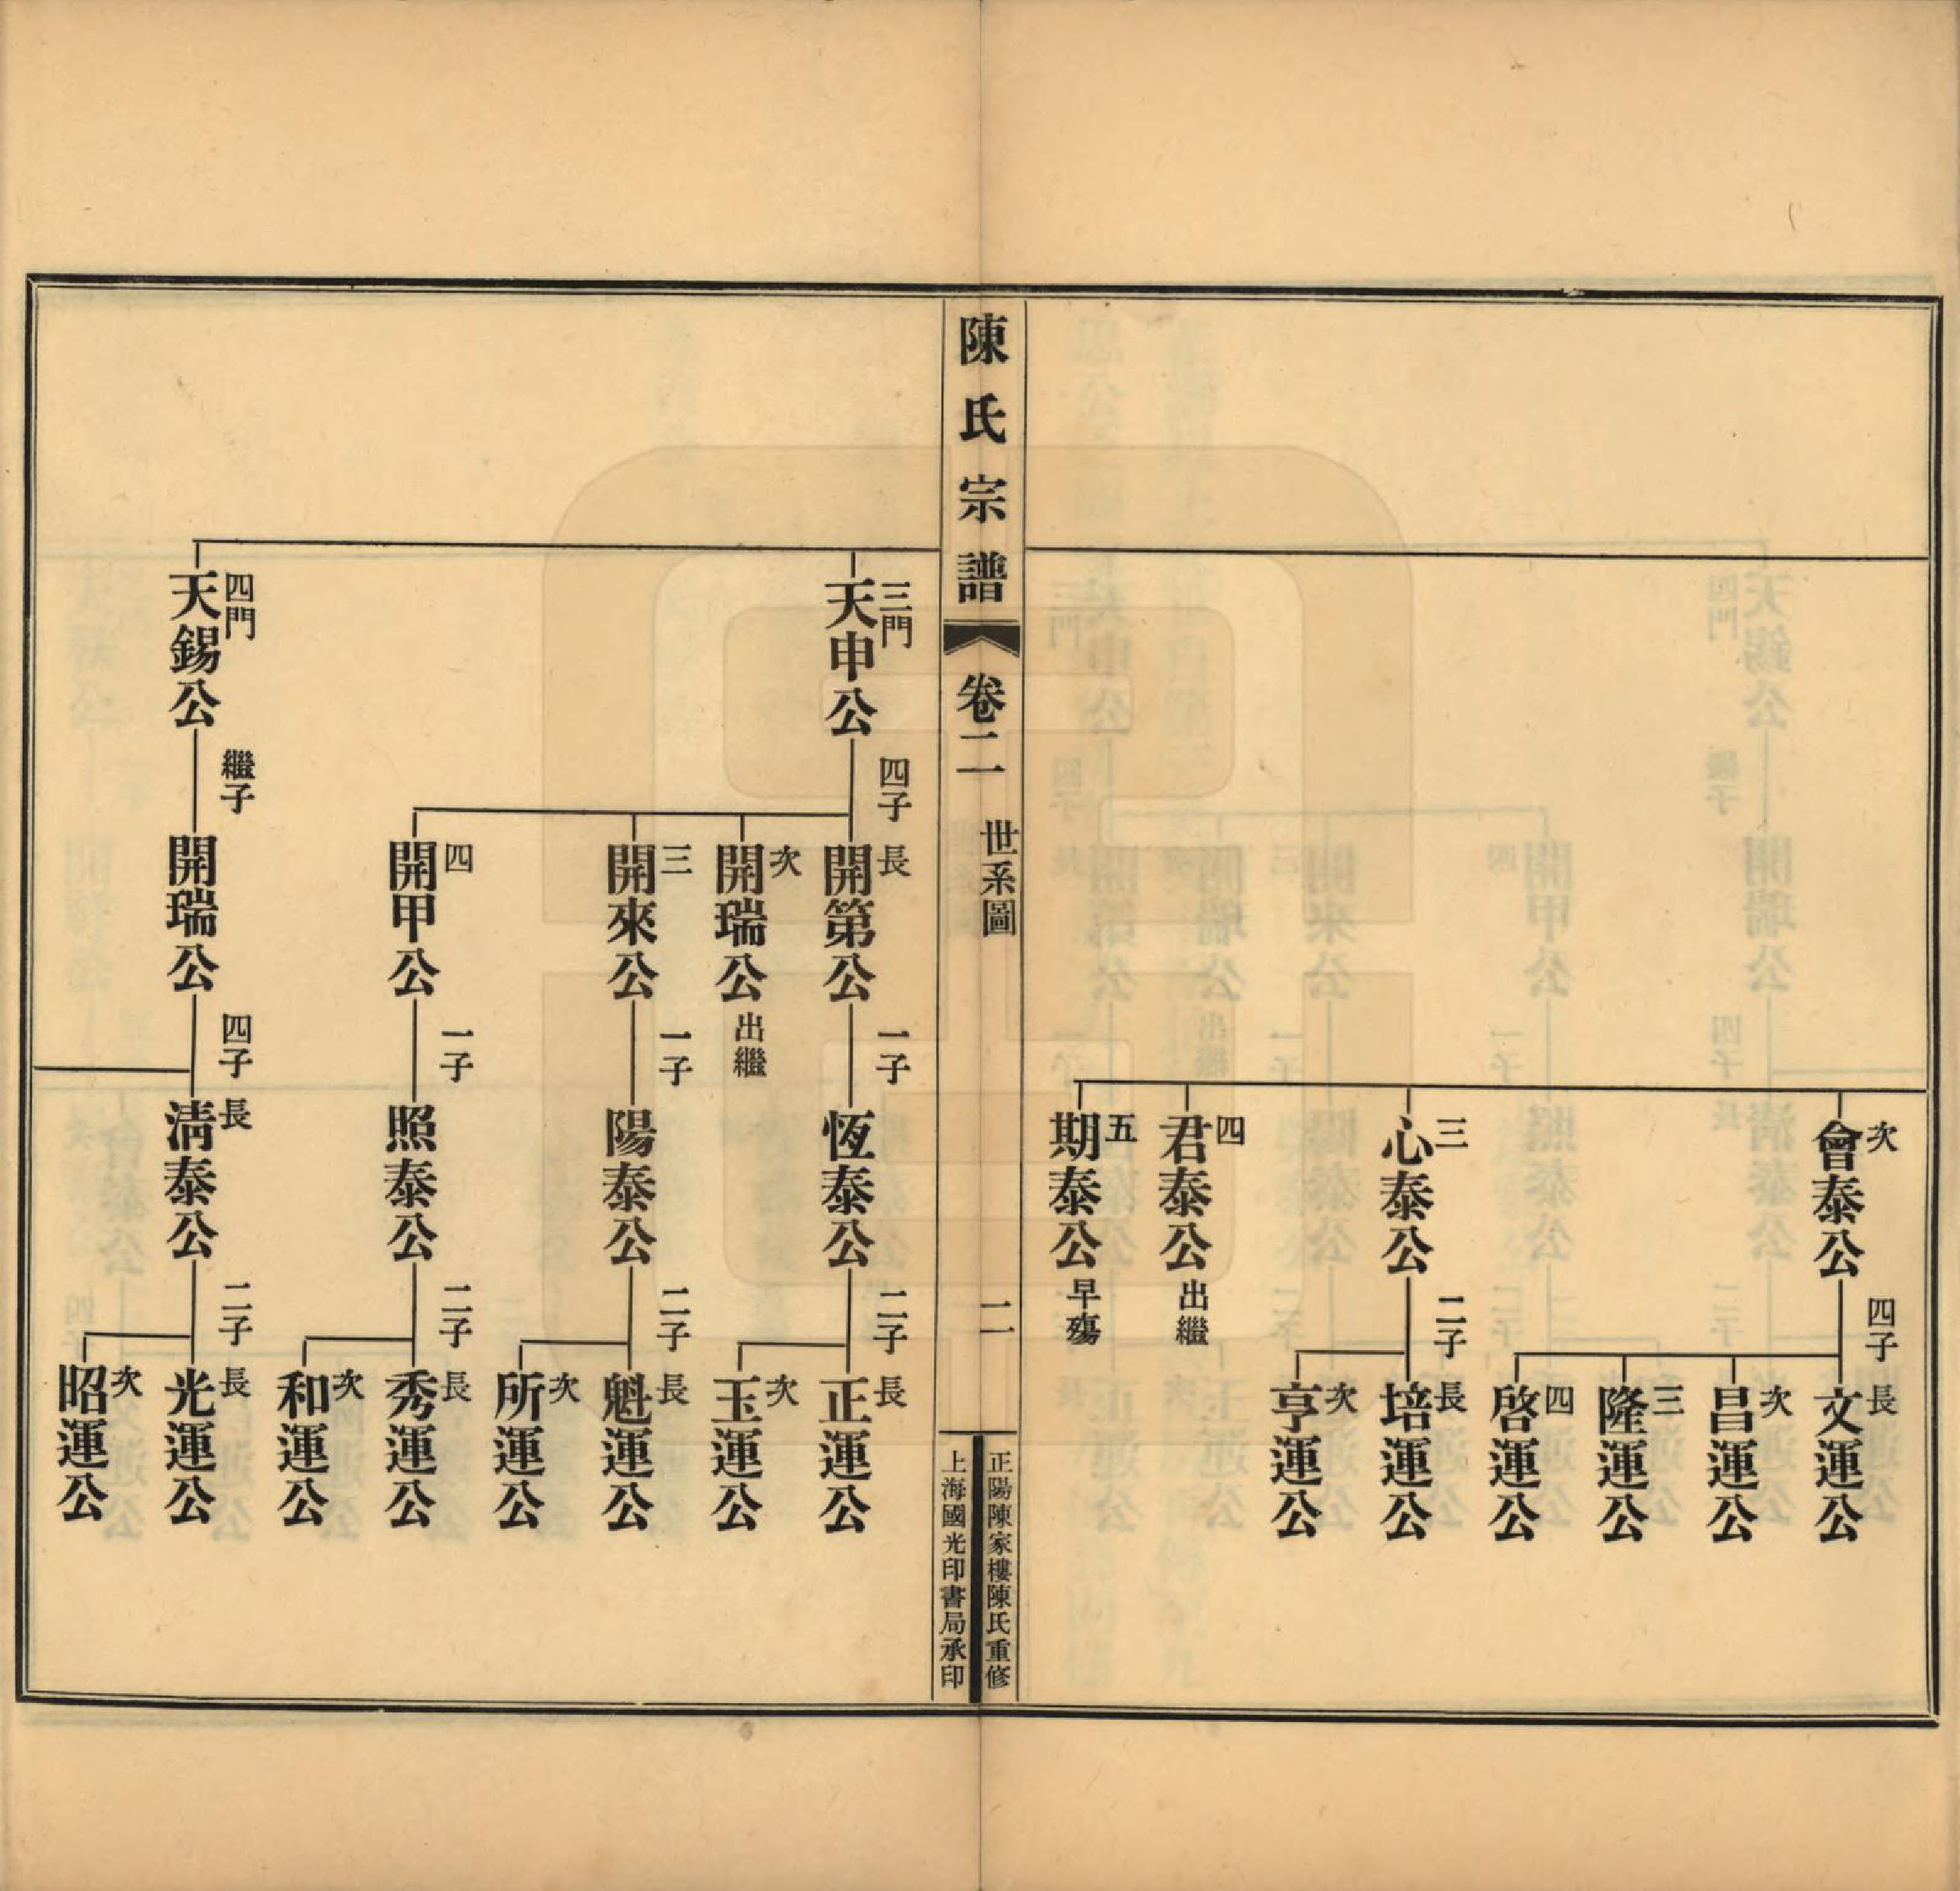 次
會泰公
四子
長
文運公
次
昌運公
三
隆運公
四
啓運公
三
心泰公
二子
長
培運公
次
亨運公
四
君泰公
出繼
五
期泰公
早殤
陳氏宗譜
卷二
世系圖
二
正陽陳家樓陳氏重修
上海國光印書局承印
三門
天申公
四子
長
開第公
一子
恆泰公
二子
長
正運公
次
玉運公
次
開瑞公
出繼
三
開來公
一子
陽泰公
二子
長
魁運公
次
所運公
四
開甲公
一子
照泰公
二子
長
秀運公
次
和運公
四門
天錫公
繼子
開瑞公
四子
長
清泰公
二子
長
光運公
次
昭運公